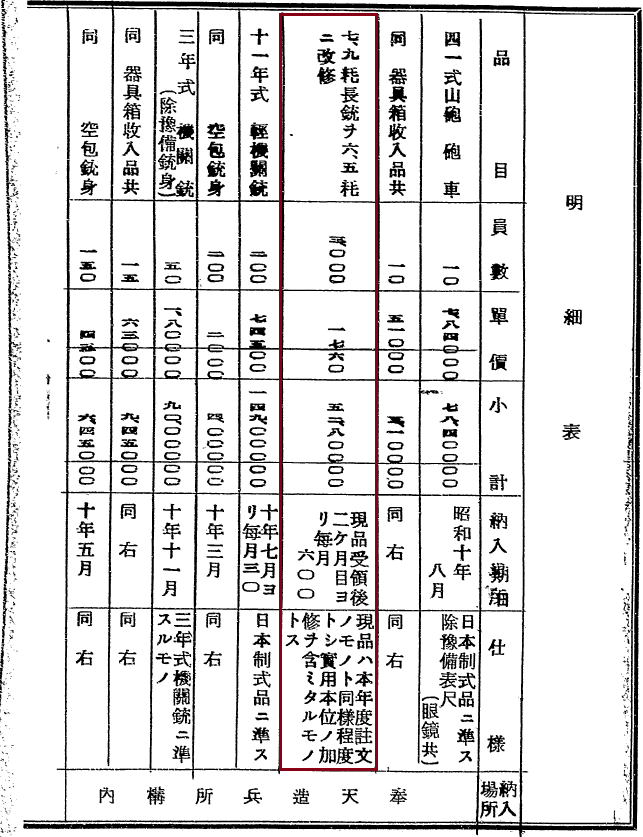 明細表
品目
員數
單價
小計
納入期日
仕様
納入場所
四一式山砲 砲車
一〇
七、八四〇〇〇
七八、四〇〇〇〇
昭和十年
八月
日本制式品ニ準ス
除豫備表尺
(眼鏡共)
同 器具箱收入品共
一〇
同右
同右
七、九粍長銃ヲ六、五粍
ニ改修
三、〇〇〇
一七六〇
五二、八〇〇〇〇
現品受領後
二ケ月目ヨ
リ每月
六〇〇
現品ハ本年度註文
ノモノト同樣程度
トシ實用本位ノ加
修ヲ含ミタルモノ
トス
十一年式 輕機關銃
二〇〇
七四五〇〇
一四九、〇〇〇〇〇
十年七月ヨ
リ每月三〇
日本制式品ニ準ス
同 空包銃身
二〇〇
二〇〇〇
四、〇〇〇〇〇
十年三月
同右
三年式 機關銃
(除豫備銃身)
五〇
一、八〇〇〇〇
九〇、〇〇〇〇〇
十年十一月
三年式機關銃ニ準
スルモノ
同 器具箱收入品共
一五
六三〇〇〇
九、四五〇〇〇
同右
同右
同 空包銃身
一五〇
四三〇〇
六、四五〇〇〇
十年五月
同右
奉天造兵所構內